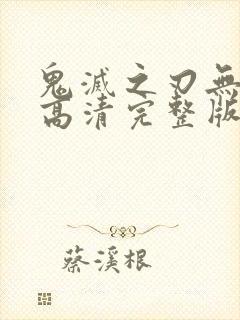 鬼滅之刃無
高清完整版
蔡溪根